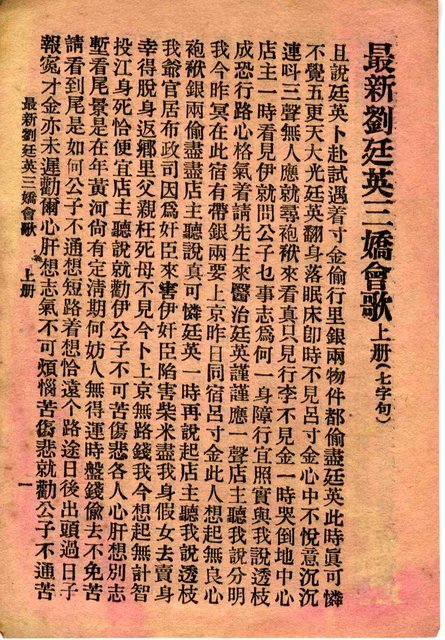 最新劉廷英三嬌會歌 上册(七字句)
且說廷英卜赴試遇着寸金偷行里銀兩物件都偷盡廷英此時眞可憐
不覺五更天大光廷英翻身落眠床卽時不見呂寸金心中不悅意沉沉
連呌三聲無人應就尋袍袱來看真只見行李不見金一時哭倒地中心
店主一時看見伊就問公子乜事志爲何一身障行宜照實與我說透枝
成恐行路心格氣着請先生來醫治廷英謹謹應一聲店主聽我說分明
我今昨冥在此宿有帶銀兩要上京昨日同宿呂寸金此人想起無良心
袍袱銀兩偷盡盡店主聽說真可憐廷英一時再說起店主聽我說透枝
我爺官居布政司因爲奸臣來害伊奸臣陷害柴米盡我身假女去賣身
幸得脫身返鄉里父親枉死母不見今卜上京無路錢我今想起無計智
投江身死恰便宜店主聽說就勸伊公子不可苦傷悲各人心肝想別志
塹看尾景是在年黃河尙有定清期何妨人無得運時盤錢偷去不免苦
請看到尾是如何公子不通想短路着想恰遠个路途日後出頭過日子
報寃才金亦未遲勸爾心肝想志氣不可煩惱苦傷悲就勸公子不通苦
最新劉廷英三嬌會歌 上册 一